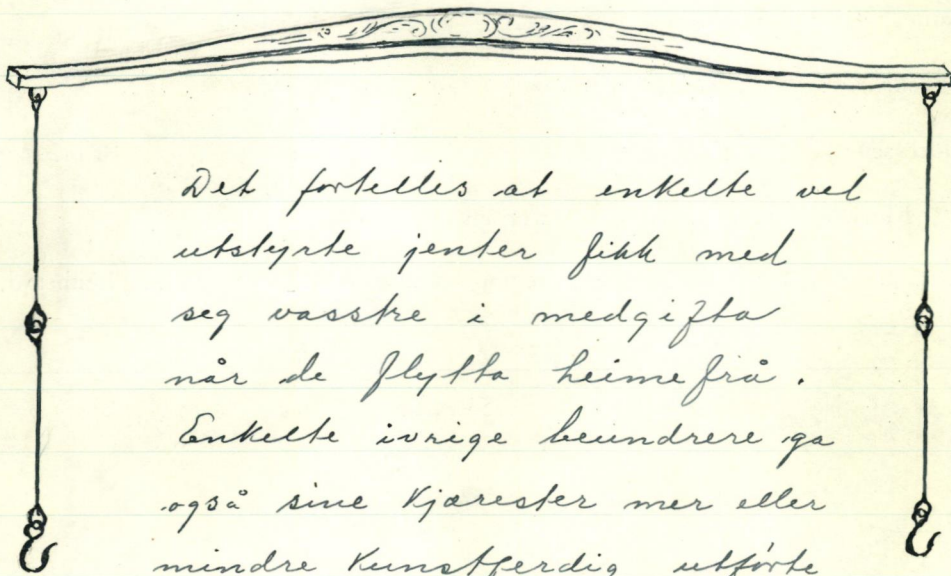 Det fortelles at enkelte vel
utstyrte jenter fikk med
seg vasstre i medgifta
når de flytta heimefrå.
Enkelte ivrige beundrere ga
også sine kjærester mer eller
mindre kunstferdig utførte